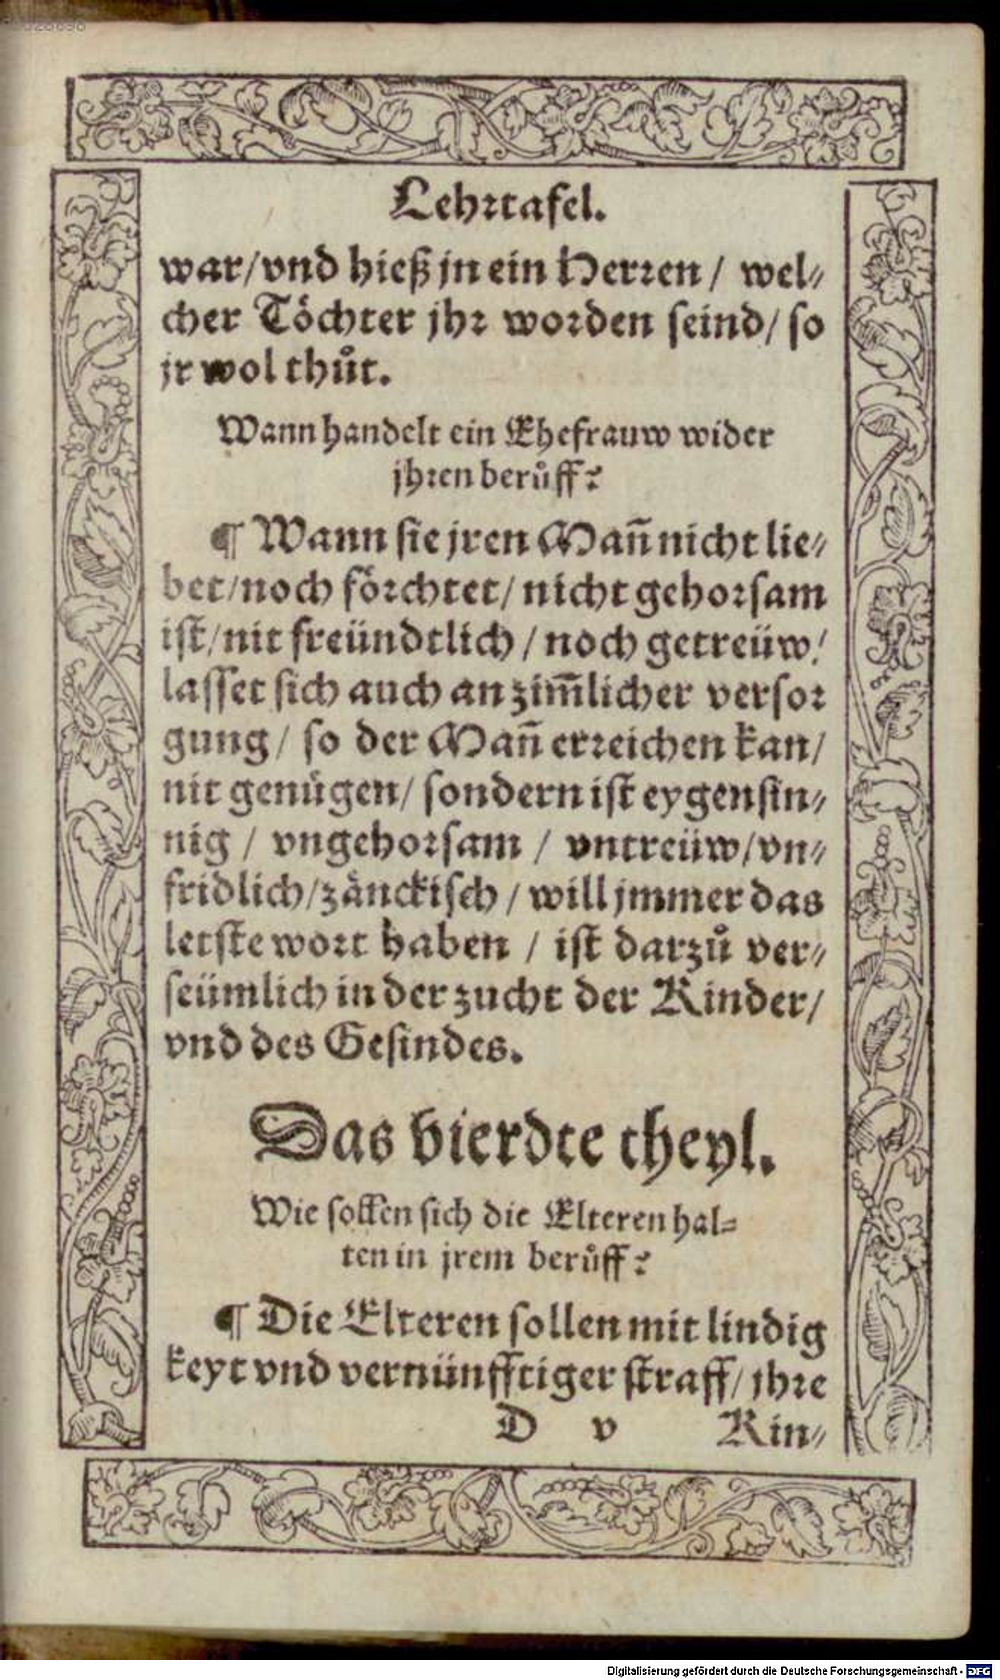 Lehrtafel.
war/vnd hieß jn ein Herren / wel⸗
cher Töchter jhr worden seind/ so
jr wol thůt.
Wann handelt ein Ehefrauw wider
jhren berůff?
¶ Wann sie jren Mañ nicht lie⸗
bet/noch förchtet/ nicht gehorsam
ist/nit freündtlich / noch getreüw/
lasset sich auch an zim̃licher versor
gung/ so der Mañ erreichen kan/
nit genügen/ sondern ist eygensin⸗
nig / vngehorsam / vntreüw/vn⸗
fridlich/zänckisch / will jmmer das
letste wort haben / ist darzů ver⸗
seümlich in der zucht der Kinder/
vnd des Gesindes.
Das vierdte theyl.
Wie sollen sich die Elteren hal⸗
ten in jrem berůff?
¶ Die Elteren sollen mit lindig
keyt vnd vernünfftiger straff/ jhre
D v Kin⸗
Digitalisierung gefördert durch die Deutsche Forschungsgemeinschaft - DFG